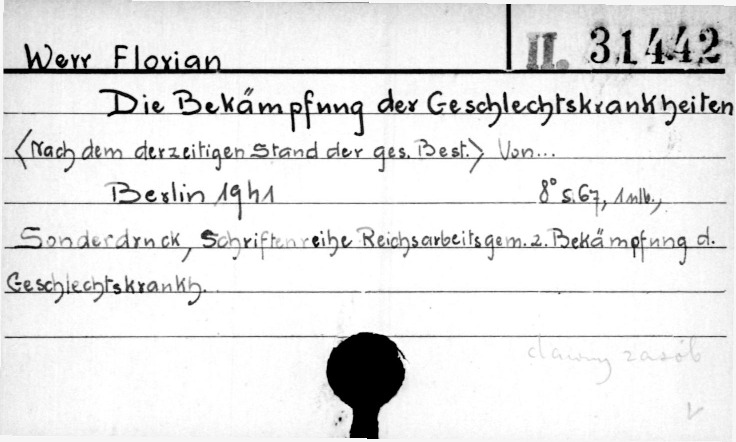 Werr Florian
II. 31442
Die Bekämpfung der Geschlechtskrankheiten
<Nach dem derzeitigen Stand der ges. Best.> Von...
Berlin 1941 8° S. 67, 1 nlb.,
Sonderdruck, Schriftenreihe Reichsarbeitsgem. z. Bekämpfung d.
Geschlechtskrankh.
dawny zasób